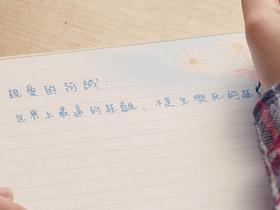 親愛的阿誠：
世界上最遠的距離、不是生與死的距